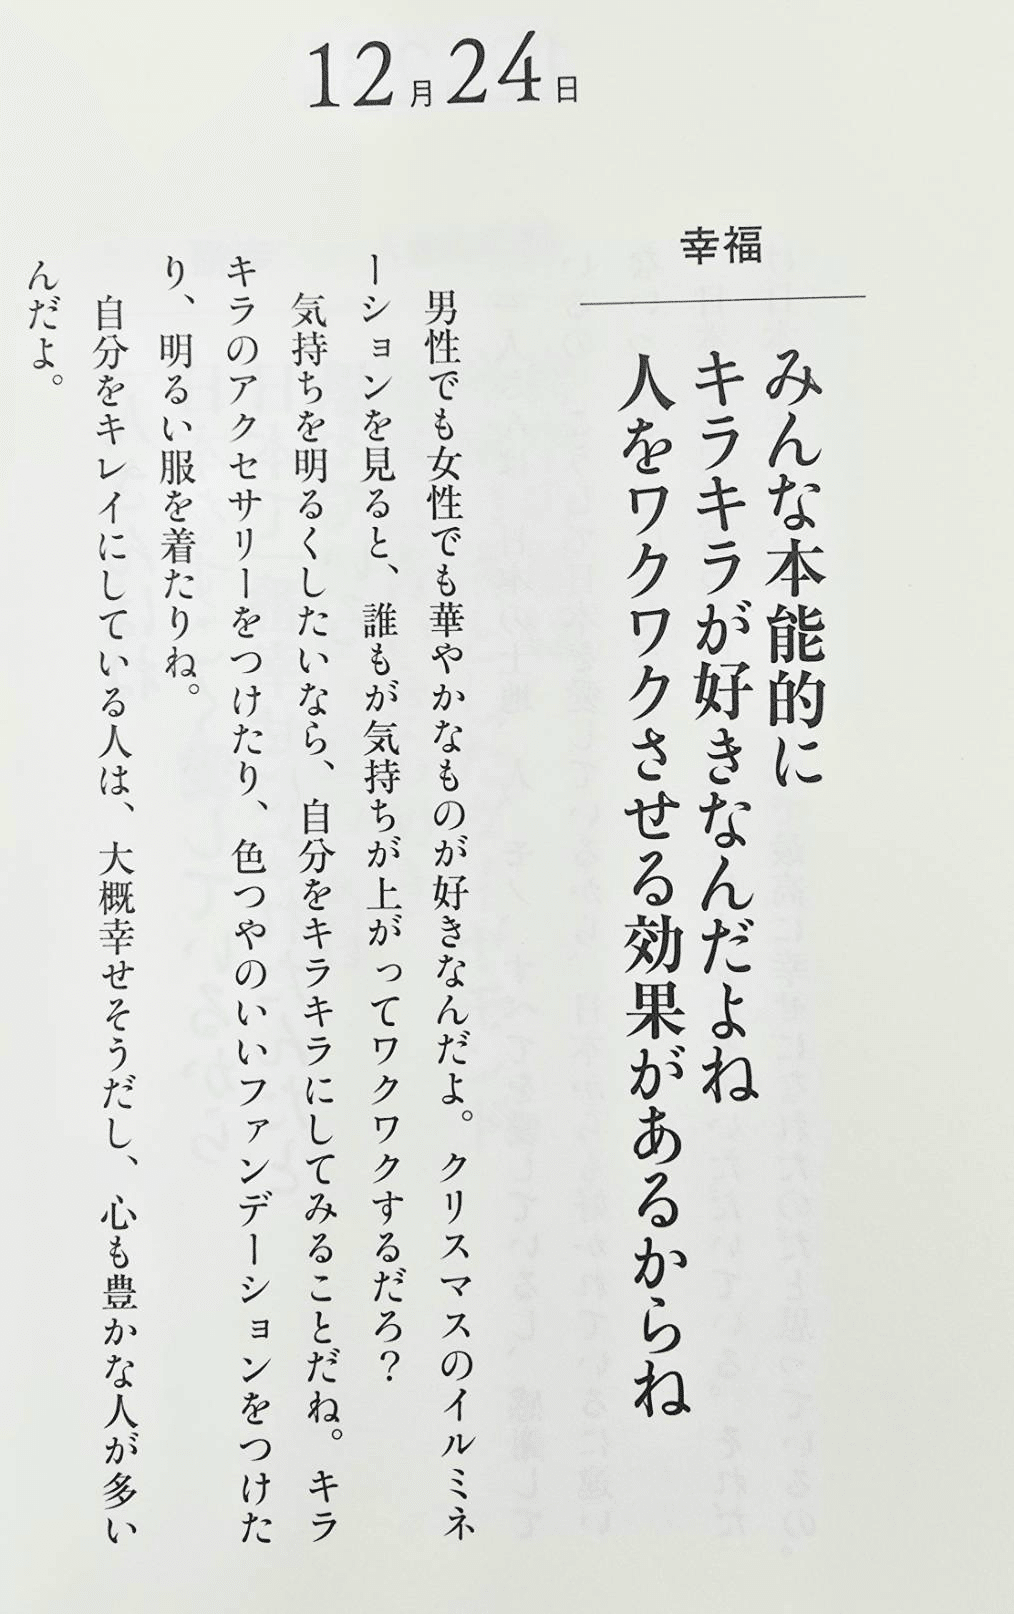 12月24日
幸福
みんな本能的に
キラキラが好きなんだよね
人をワクワクさせる効果があるからね
男性でも女性でも華やかなものが好きなんだよ。クリスマスのイルミネ
ーションを見ると、誰もが気持ちが上がってワクワクするだろ？
気持ちを明るくしたいなら、自分をキラキラにしてみることだね。キラ
キラのアクセサリーをつけたり、色つやのいいファンデーションをつけた
り、明るい服を着たりね。
自分をキレイにしている人は、大概幸せそうだし、心も豊かな人が多い
んだよ。